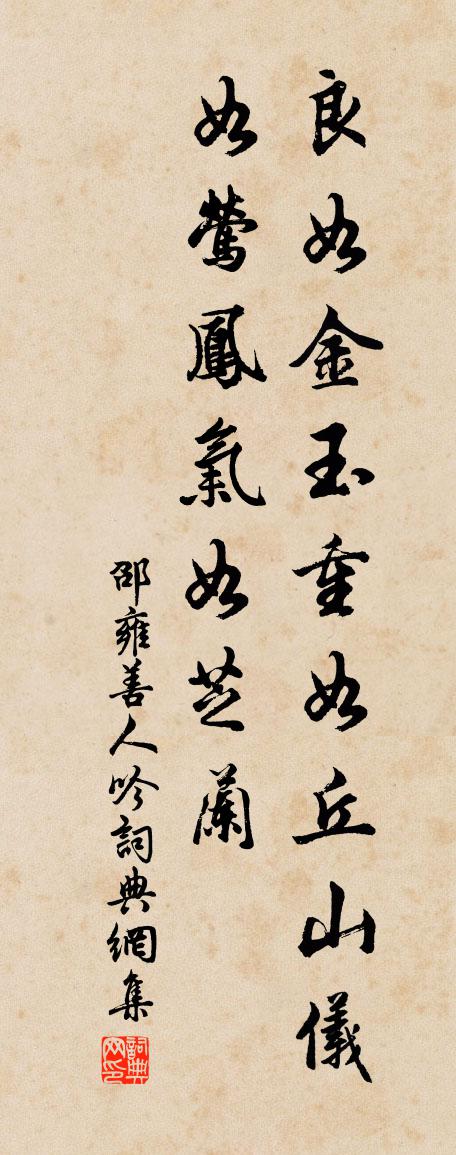 良如金玉重如丘山儀
如鶯鳳氣如芝蘭
邵雍善人吟詞典網集
詞典
网印